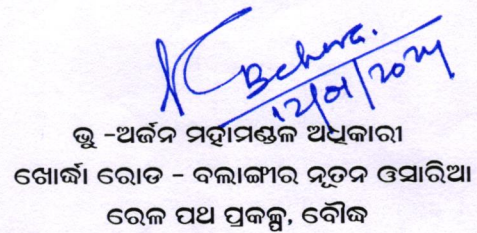 Behera.
ଭୂ -ଅର୍ଜନ ମହାମଣ୍ଡଳ ଅଧିକାରୀ
ଖୋର୍ଦ୍ଧା ରୋଡ - ବଲାଙ୍ଗୀର ନୂତନ ଓସାରିଆ
ରେଳ ପଥ ପ୍ରକଳ୍ପ, ବୌଦ୍ଧ